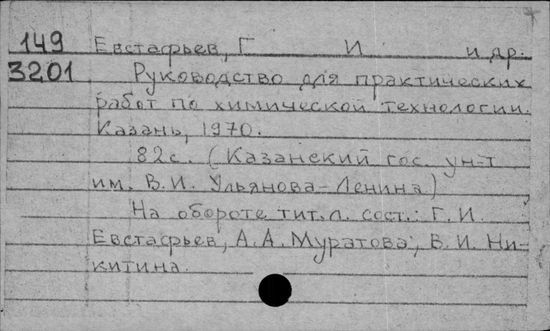 149 Евстафьев, Г И и др.
3201 Руководство для практических
работ по химической технологии.
Казань, 1970.
82с. (Казанский гос. ун-т
им. В.И. Ульянова-Ленина)
На обороте тит.л. сост.: Г.И.
Евстафьев, А.А. Муратова, В.И. Ни-
китина.